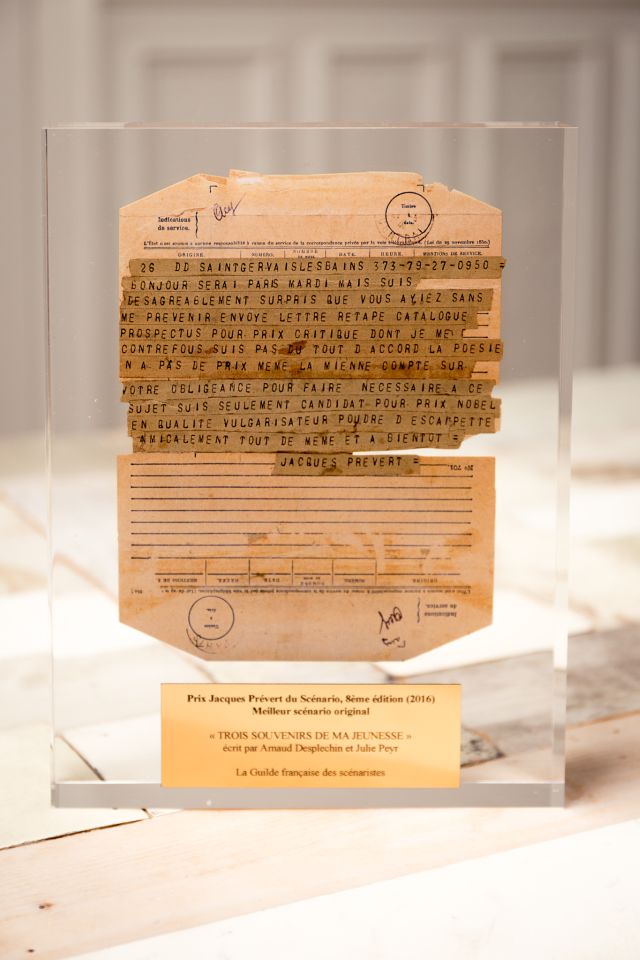 Indications de service.
Timbre à date.
L'État n'est soumis à aucune responsabilité à raison du service de la correspondance privée par la voie télégraphique. (Loi du 29 novembre 1850
ORIGINE. NUMÉRO. NOMBRE DE MOTS DATE. HEURE. MENTIONS DE SERVICE.
26 DD SAINTGERVAISLESBAINS 373-79-27-0950 =
BONJOUR SERAI PARIS MARDI MAIS SUIS
DESAGREABLEMENT SURPRIS QUE VOUS AYIEZ SANS
ME PREVENIR ENVOYE LETTRE RETAPE CATALOGUE
PROSPECTUS POUR PRIX CRITIQUE DONT JE ME
CONTREFOUS SUIS PAS DU TOUT D ACCORD LA POESIE
N A PAS DE PRIX MEME LA MIENNE COMPTE SUR
VOTRE OBLIGEANCE POUR FAIRE NECESSAIRE A CE
SUJET SUIS SEULEMENT CANDIDAT POUR PRIX NOBEL
EN QUALITE VULGARISATEUR POUDRE D ESCAMPETTE
AMICALEMENT TOUT DE MEME ET A BIENTOT =
JACQUES PREVERT =
No 701.
ORIGINE. NUMÉRO. NOMBRE DE MOTS DATE. HEURE. MENTIONS DE S
Indications de service.
Timbre à date.
Prix Jacques Prévert du Scénario, 8ème édition (2016)
Meilleur scénario original
« TROIS SOUVENIRS DE MA JEUNESSE »
écrit par Arnaud Desplechin et Julie Peyr
La Guilde française des scénaristes